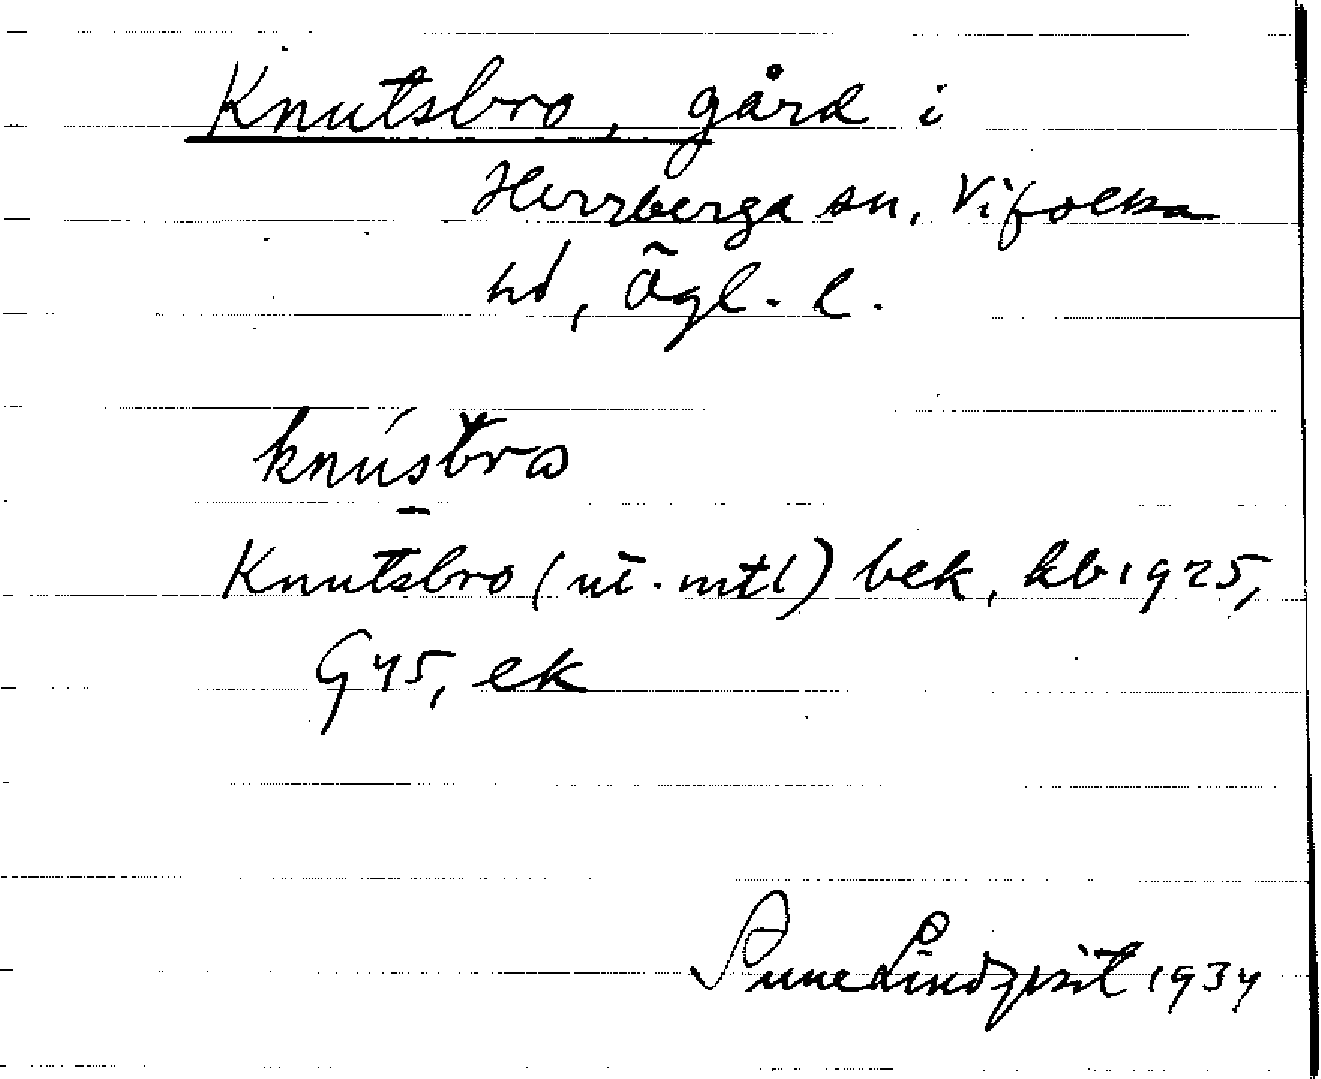 Knutsbro, gård i
Herrberga sn, Vifolka
hd, Ögl. l.
knú̱sbro
Knutsbro (ut. mtl) bek, kb 1925,
G 45, ek
Sune Lindqvist 1934